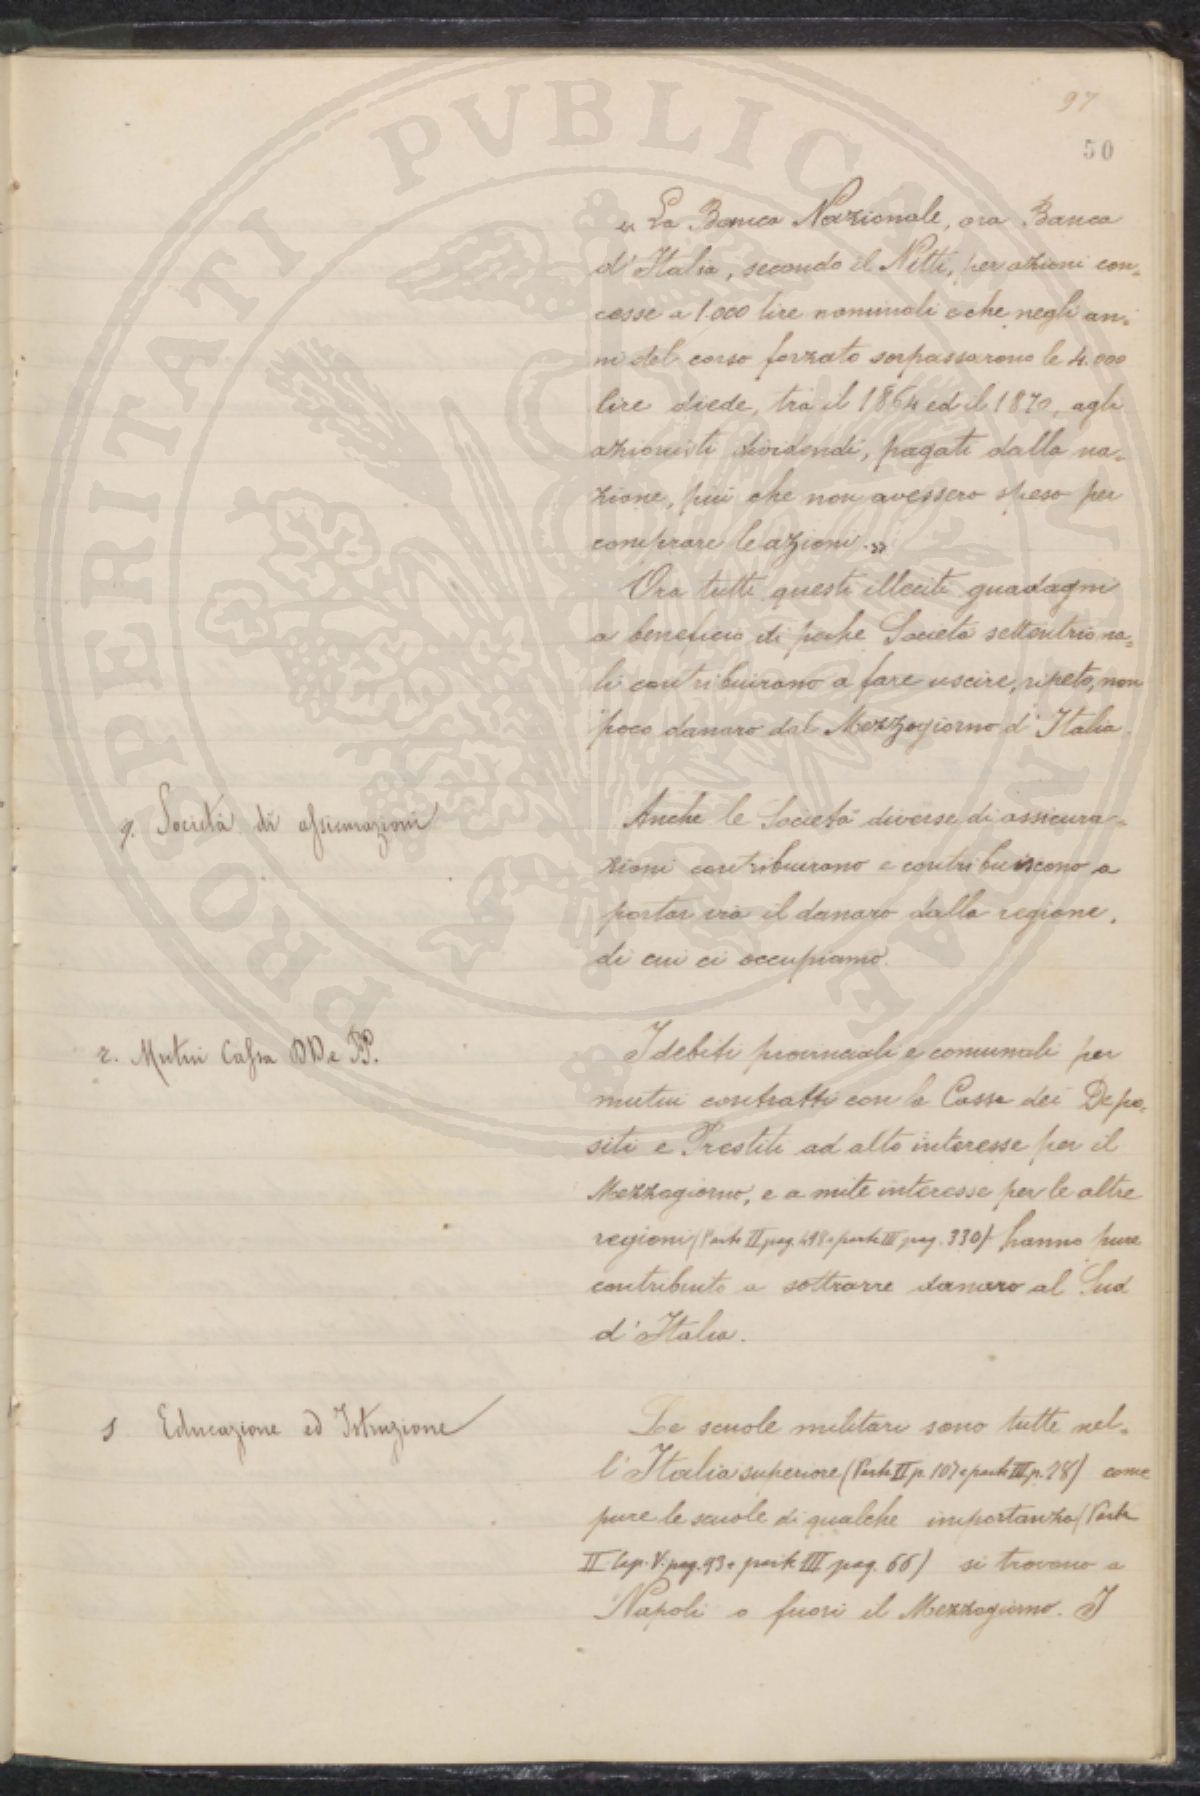 97
50
« La Banca Nazionale, ora Banca
d'Italia, secondo il Nitti, per azioni con=
cesse a 1.000 lire nominali e che negli an=
ni del corso forzato sorpassarono le 4.000
lire diede, tra il 1864 ed il 1870, agli
azionisti dividendi, pagati dalla na=
zione, più che non avessero speso per
comprare le azioni.»
Ora tutti questi illeciti guadagni
a beneficio di poche Società settentriona=
li contribuirono a fare uscire, ripeto, non
poco danaro dal Mezzogiorno d'Italia.
q. Società di assicurazioni
Anche le Società diverse di assicura=
zioni contribuirono e contribuiscono a
portar via il danaro dalla regione,
di cui ci occupiamo.
r. Mutui Cassa DD e PP.
I debiti provinciali e comunali per
mutui contratti con la Cassa dei Depo=
siti e Prestiti ad alto interesse per il
Mezzogiorno, e a mite interesse per le altre
regioni (Parte II pag. 498 e parte III pag. 330) hanno pure
contribuito a sottrarre danaro al Sud
d'Italia.
s Educazione ed Istruzione
Le scuole militari sono tutte nel=
l'Italia superiore (Parte II p. 107 e parte III p. 28) come
pure le scuole di qualche importanza (Parte
II Cap. V. pag. 93 e parte III pag. 66) si trovano a
Napoli o fuori il Mezzogiorno. I
PROSPERITATI PVBLICAE